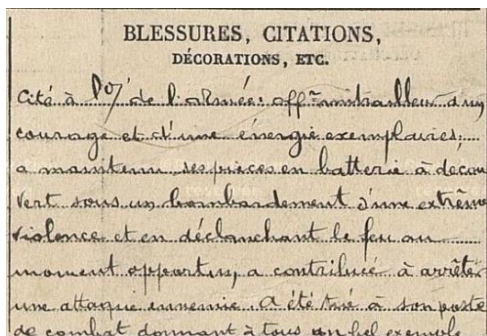 BLESSURES, CITATIONS,
DÉCORATIONS, ETC.
Cité à l'O/ de l'armée: offer mitrailleur d'un
courage et d'une énergie exemplaires,
a maintenu ses pièces en batterie à décou
vert sous un bombardement d'une extrême
violence et en déclanchant le feu au
moment opportun, a contribué à arrêter
une attaque ennemie. A été tué à son poste
de combat donnant à tous un bel exemple